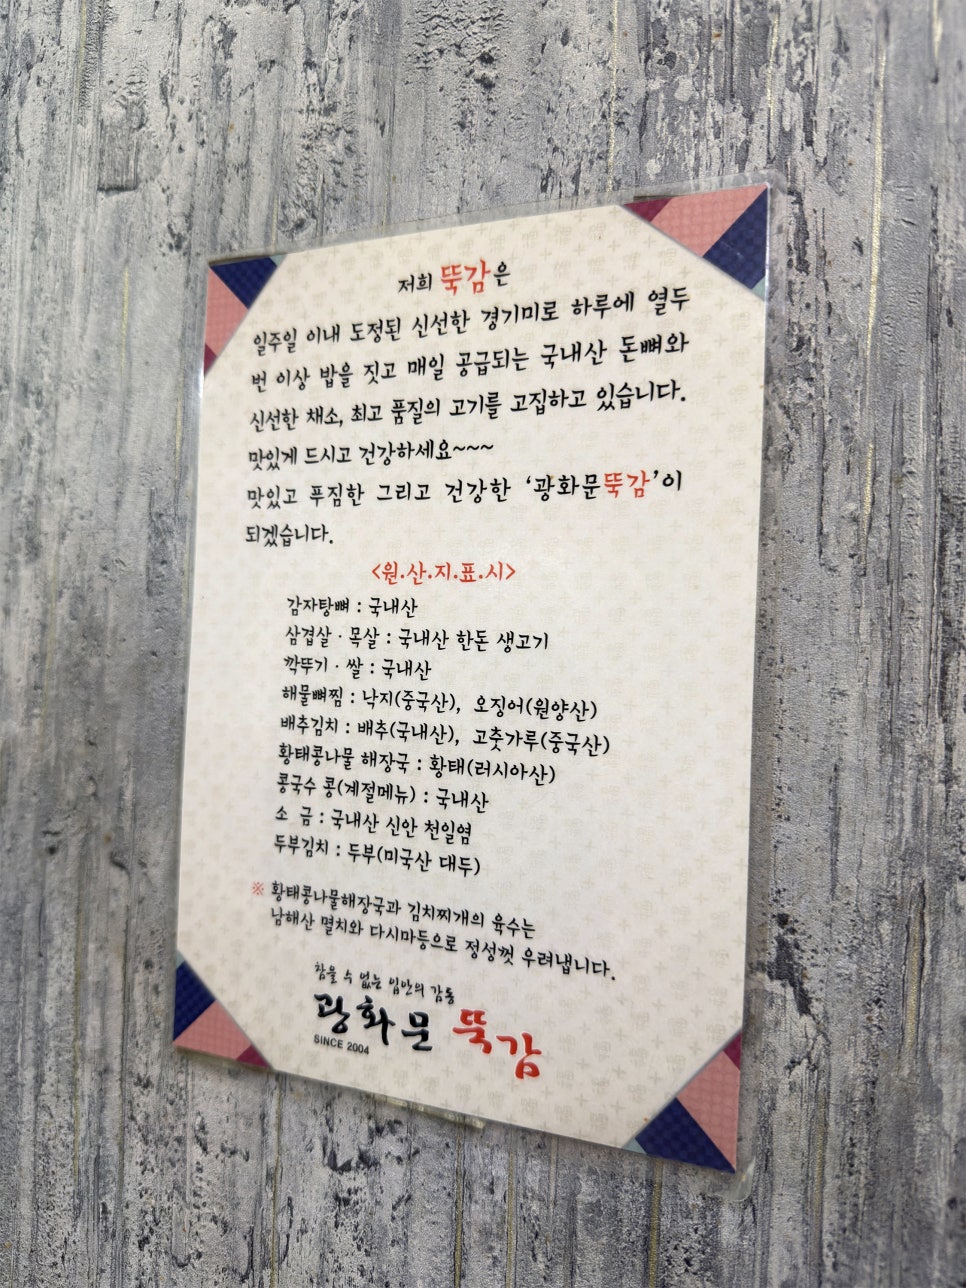 저희 뚝감은
일주일 이내 도정된 신선한 경기미로 하루에 열두
번 이상 밥을 짓고 매일 공급되는 국내산 돈뼈와
신선한 채소, 최고 품질의 고기를 고집하고 있습니다.
맛있게 드시고 건강하세요~~~
맛있고 푸짐한 그리고 건강한 ‘광화문뚝감’이
되겠습니다.
<원·산·지·표·시>
감자탕뼈 : 국내산
삼겹살 · 목살 : 국내산 한돈 생고기
깍뚜기 · 쌀 : 국내산
해물뼈찜 : 낙지(중국산), 오징어(원양산)
배추김치 : 배추(국내산), 고춧가루(중국산)
황태콩나물 해장국 : 황태(러시아산)
콩국수 콩(계절메뉴) : 국내산
소 금 : 국내산 신안 천일염
두부김치 : 두부(미국산 대두)
※ 황태콩나물해장국과 김치찌개의 육수는
남해산 멸치와 다시마등으로 정성껏 우려냅니다.
참을 수 없는 입안의 감동
광화문 뚝감
SINCE 2004